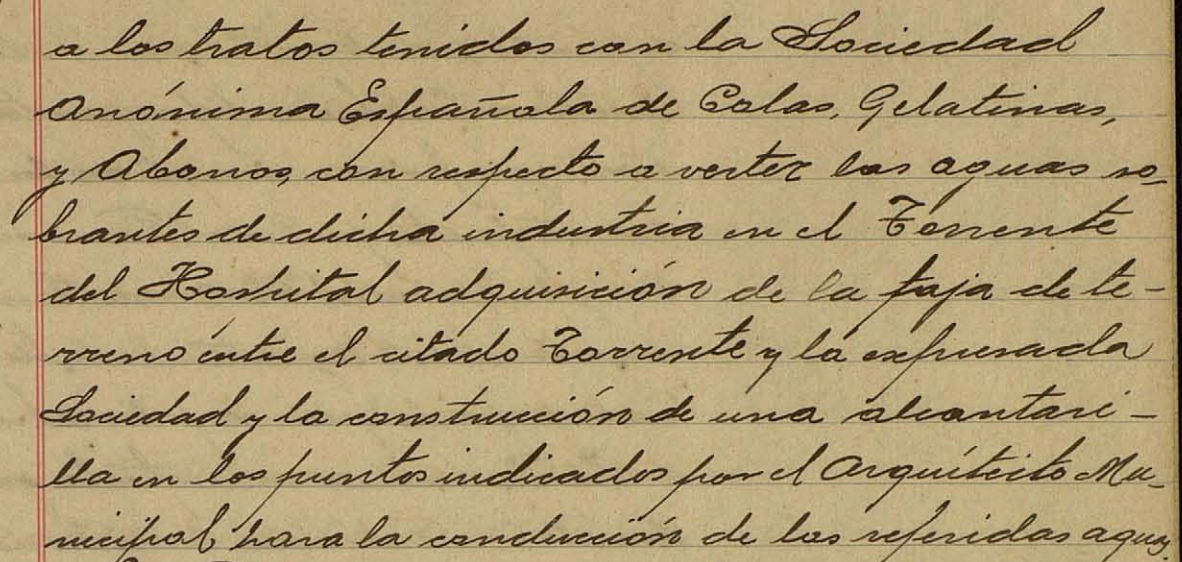 a los tratos tenidos con la Sociedad
Anónima Española de Colas, Gelatinas,
y Abonos, con respecto a verter las aguas so-
brantes de dicha industria en el Torrente
del Hospital adquisición de la faja de te-
rreno entre el citado Torrente y la expresada
Sociedad y la construcción de una alcantari-
lla en los puntos indicados por el Arquitécto Mu-
nicipal para la conducción de las referidas aguas.